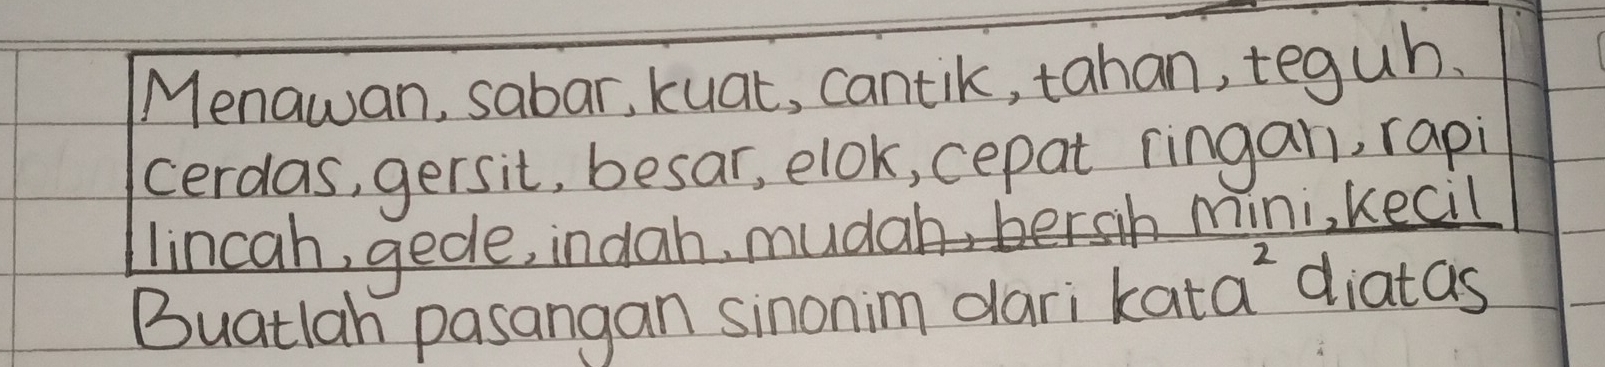 Menawan, sabar, kuat, cantik, tahan, teguh.
cerdas, gersit, besar, elok, cepat ringan, rapi
lincah, gede, indah, mudah, bersih mini, kecil
Buatlah pasangan sinonim dari kata² diatas